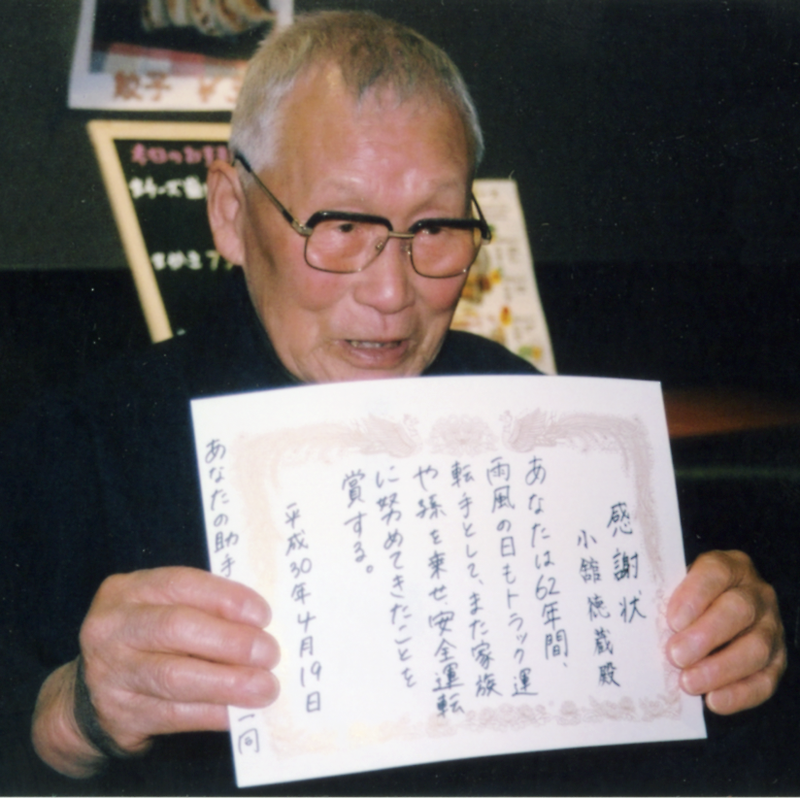 感謝状
小舘徳蔵殿
あなたは62年間、
雨風の日もトラック運
転手として、また家族
や孫を乗せ、安全運転
に努めてきたことを
賞する。
平成30年4月19日
あなたの助手
一同
餃子
本日のお